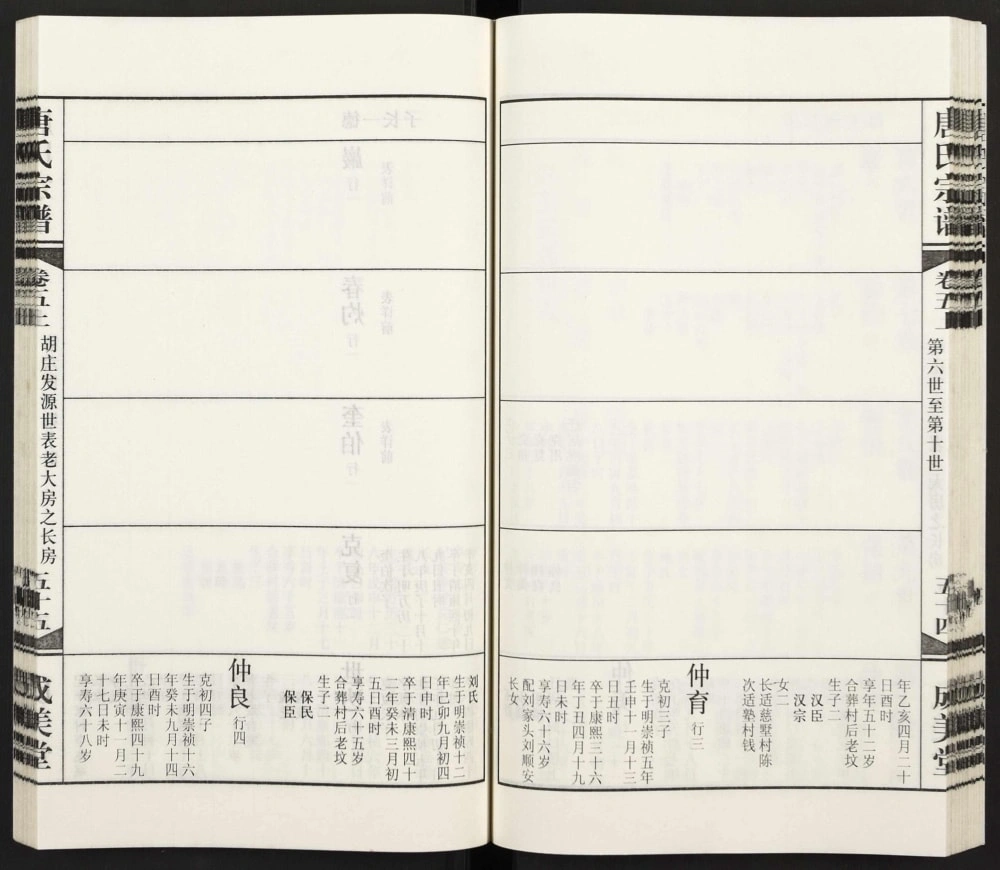 唐氏宗谱
卷五
第六世至第十世
五十四
成美堂
年乙亥四月二十
日酉时
享年五十二岁
合葬村后老坟
生子二
汉臣
汉宗
女二
长适慈墅村陈
次适塾村钱
仲育 行三
克初三子
生于明崇祯五年
壬申十一月十三
日丑时
卒于康熙三十六
年丁丑四月十九
日未时
享寿六十六岁
配刘家头刘顺安
长女
刘氏
生于明崇祯十二
年己卯九月初四
日申时
卒于清康熙四十
二年癸未三月初
五日酉时
享寿六十五岁
合葬村后老坟
生子二
保民
保臣
仲良 行四
克初四子
生于明崇祯十六
年癸未九月十四
日酉时
卒于康熙四十九
年庚寅十一月二
十七日未时
享寿六十八岁
唐氏宗谱
卷五
胡庄发源世表老大房之长房
五十五
成美堂